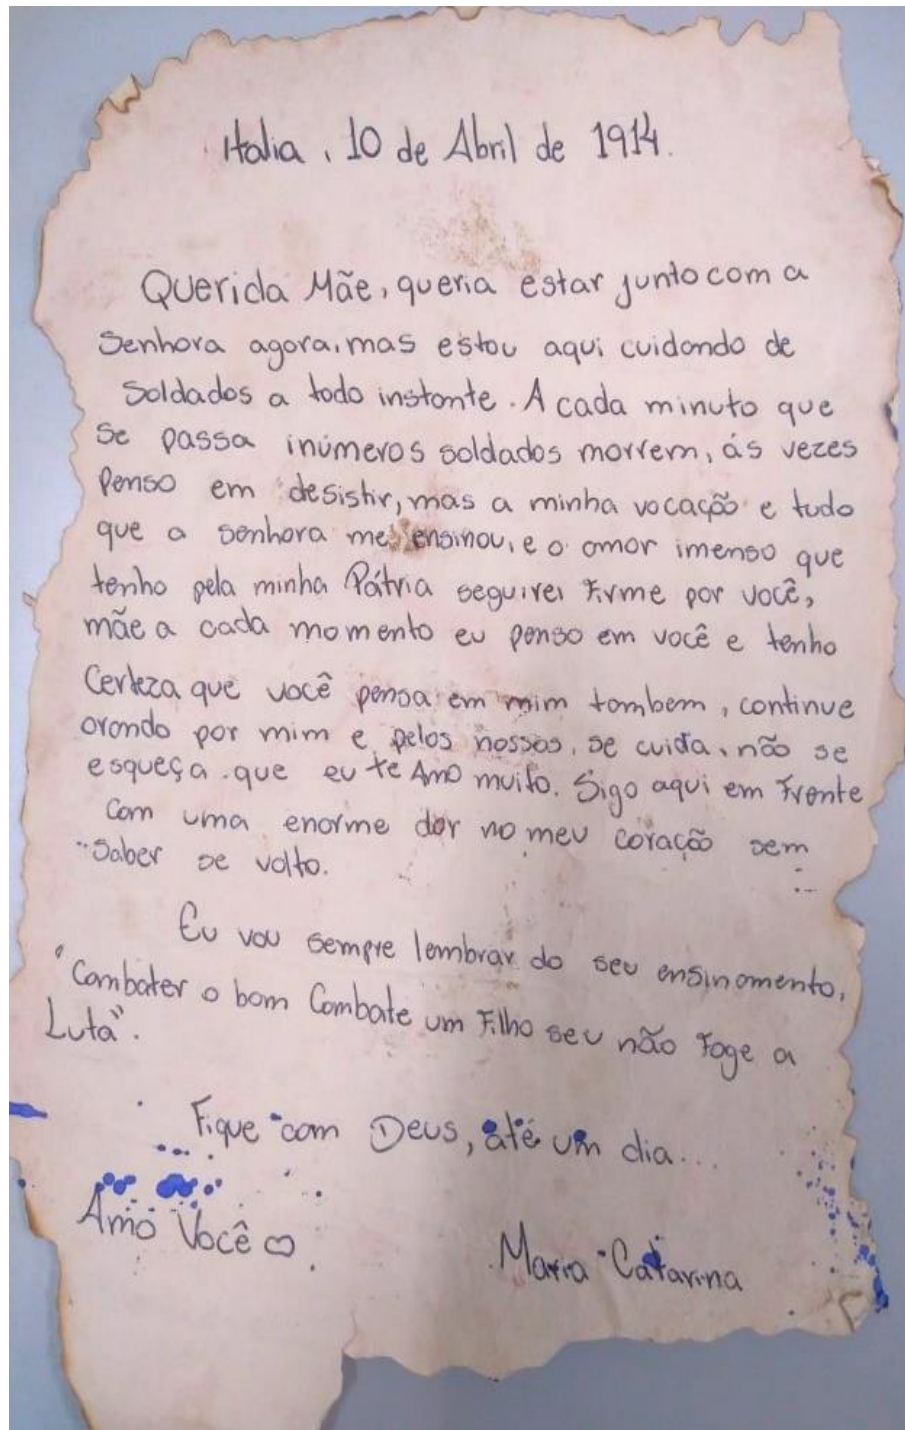 Italia, 10 de Abril de 1914.
Querida Mãe, queria estar junto com a
Senhora agora, mas estou aqui cuidando de
Soldados a todo instante. A cada minuto que
se passa inúmeros soldados morrem, ás vezes
Penso em desistir, mas a minha vocação e tudo
que a senhora me ensinou, e o amor imenso que
tenho pela minha Pátria seguirei firme por você,
mãe a cada momento eu penso em você e tenho
Certeza que você pensa em mim tambem, continue
orando por mim e pelos nossos, se cuida, não se
esqueça que eu te Amo muito. Sigo aqui em Frente
Com uma enorme dor no meu coração sem
Saber se volto.
Eu vou sempre lembrar do seu ensinamento,
"Combater o bom Combate um Filho seu não Foge a
Luta".
Fique com Deus, até um dia...
Amo Você ♡.
Maria Catarina